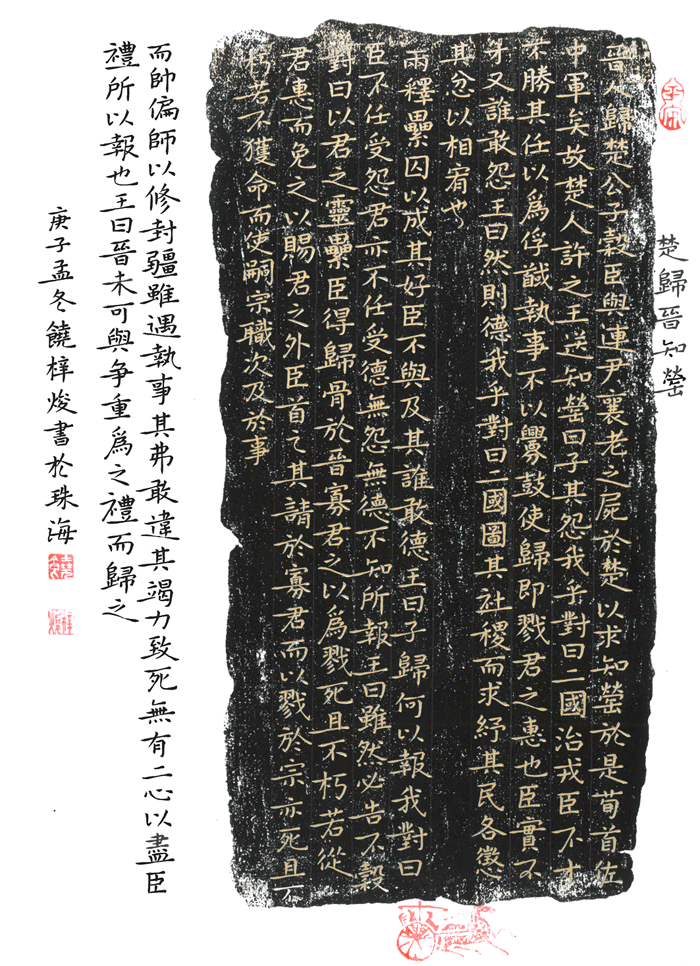 楚歸晉知罃
晉人歸楚公子穀臣與連尹襄老之屍於楚以求知罃於是荀首佐
中軍矣故楚人許之王送知罃曰子其怨我乎對曰二國治戎臣不才
不勝其任以為俘馘執事不以釁鼓使歸即戮君之惠也臣實不
才又誰敢怨王曰然則德我乎對曰二國圖其社稷而求紓其民各懲
其忿以相宥也
兩釋纍囚以成其好臣不與及其誰敢德王曰子歸何以報我對曰
臣不任受怨君亦不任受德無怨無德不知所報王曰雖然必告不穀
對曰以君之靈纍臣得歸骨於晉寡君之以為戮死且不朽若從
君惠而免之以賜君之外臣首首其請於寡君而以戮於宗亦死且不
朽若不獲命而使嗣宗職次及於事
而帥偏師以修封疆雖遇執事其弗敢違其竭力致死無有二心以盡臣
禮所以報也王曰晉未可與爭重為之禮而歸之
庚子孟冬饒梓焌書於珠海